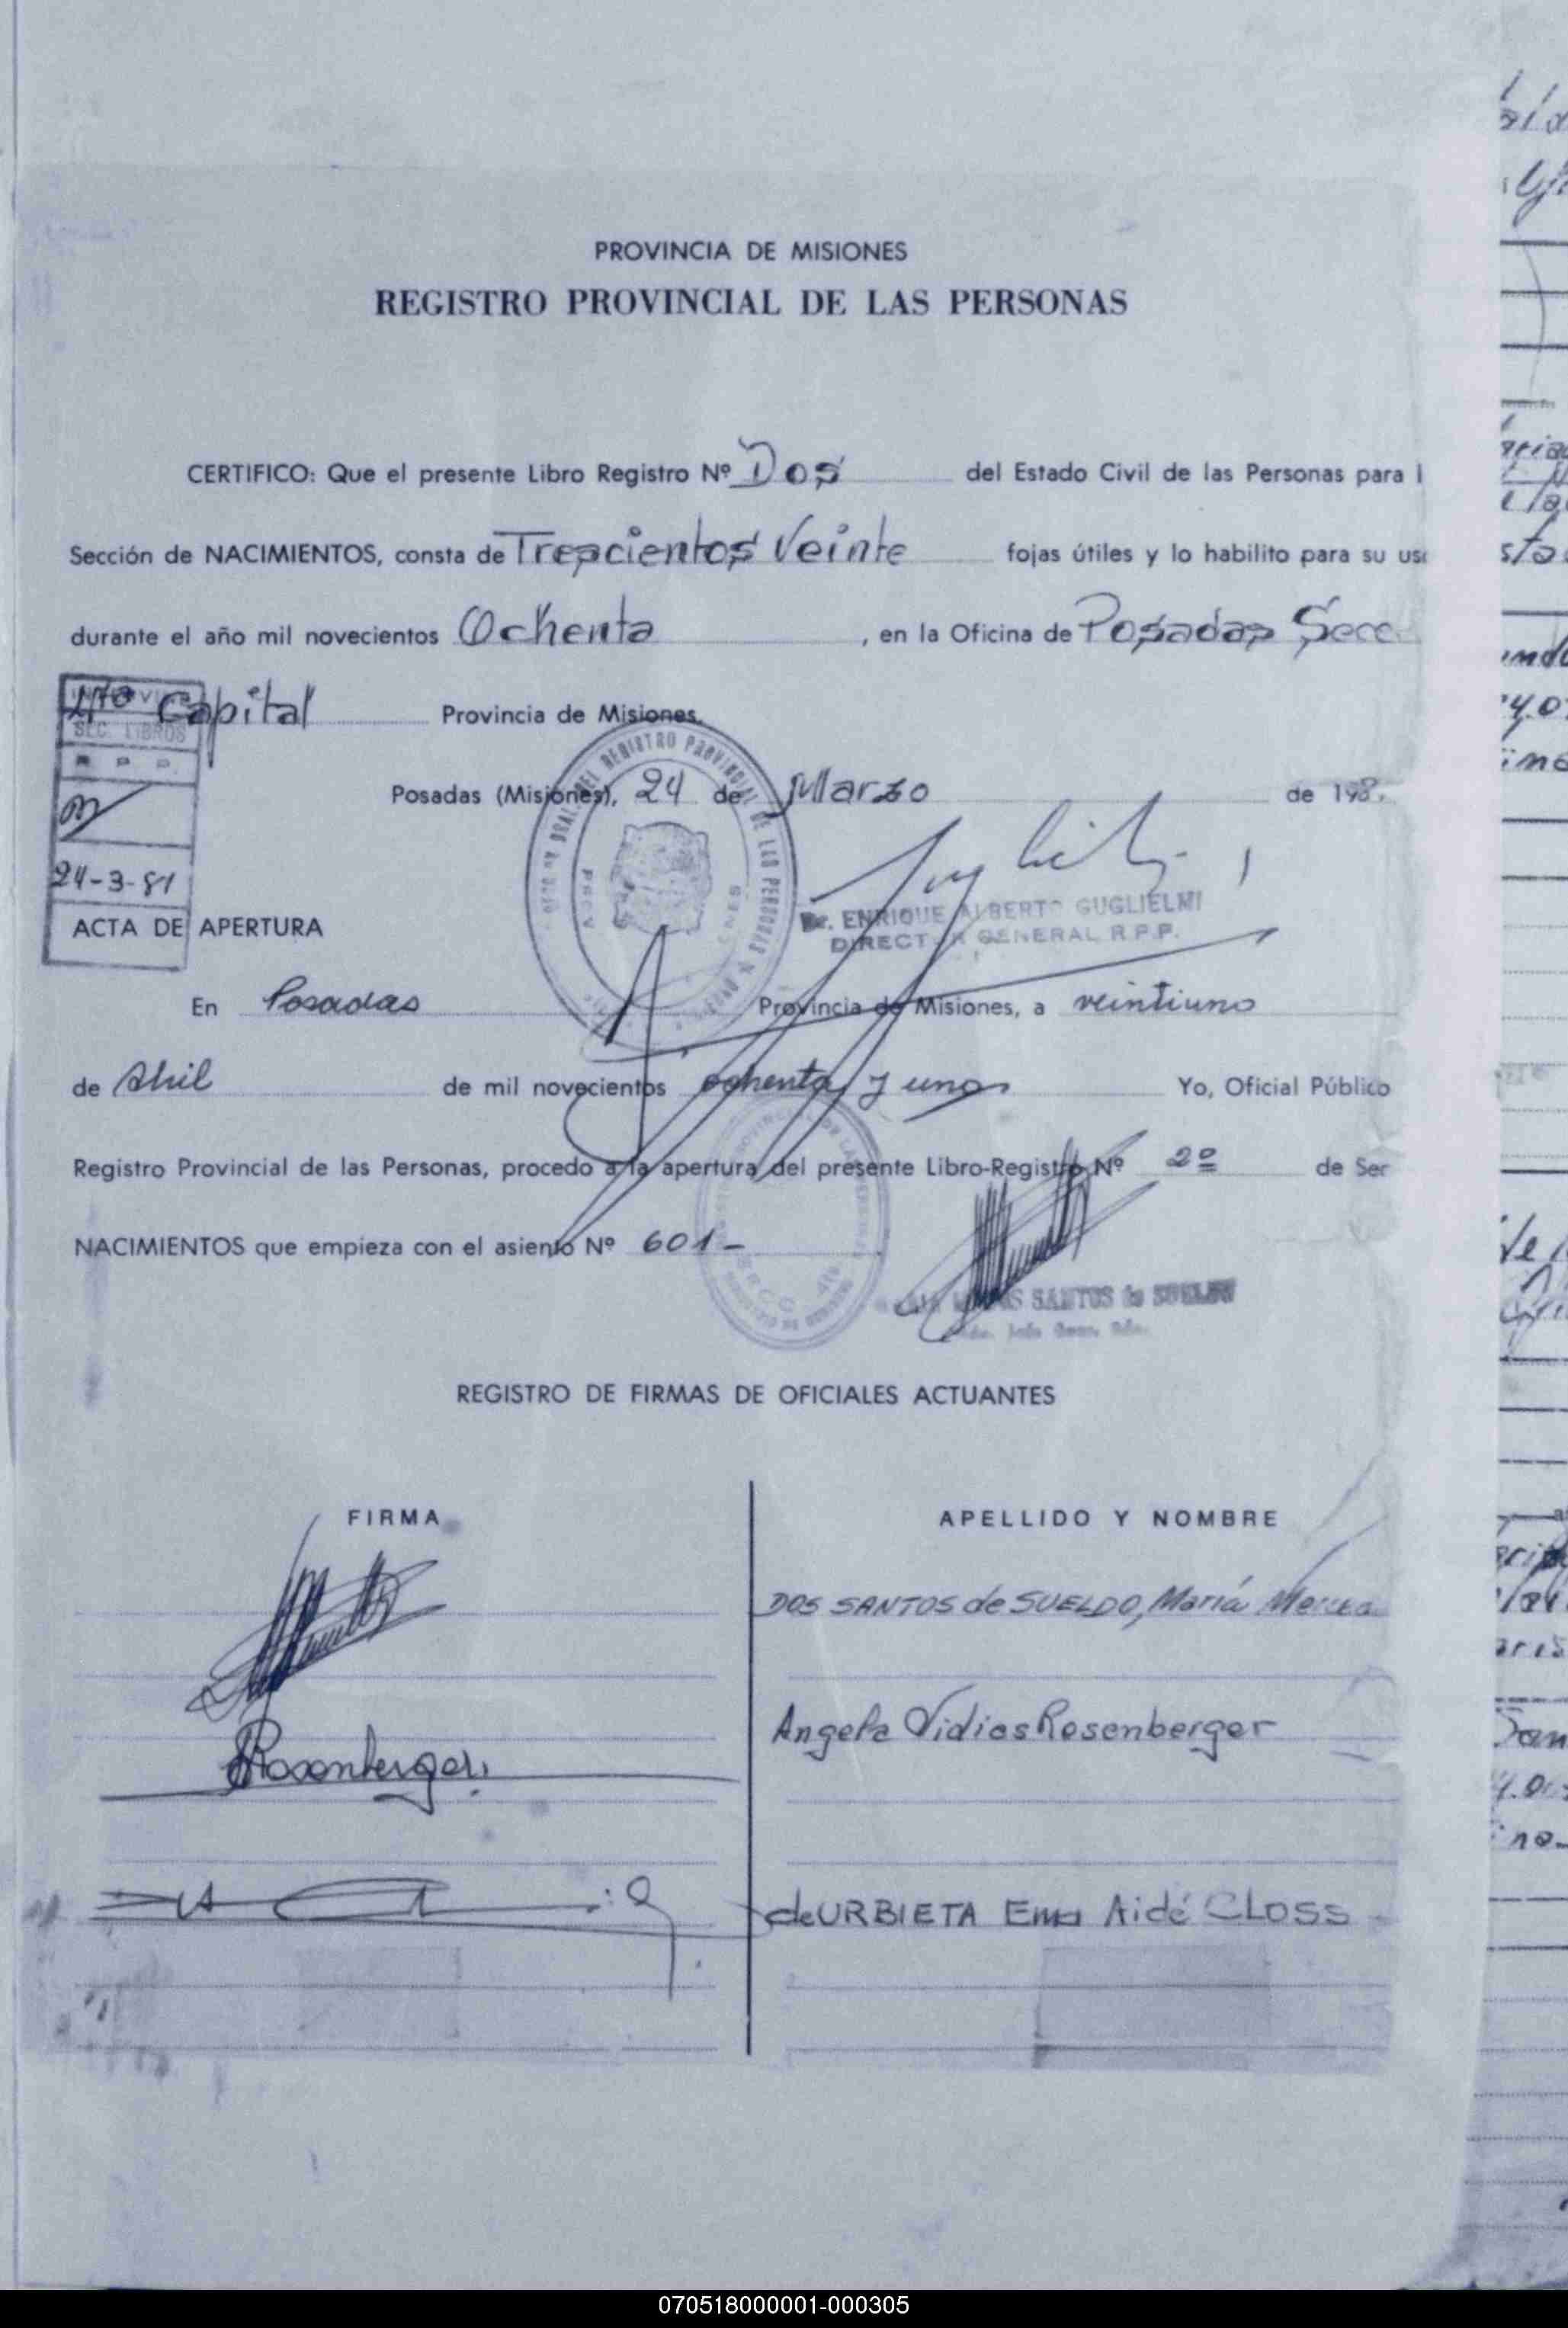 PROVINCIA DE MISIONES
REGISTRO PROVINCIAL DE LAS PERSONAS
CERTIFICO: Que el presente Libro Registro Nº Dos del Estado Civil de las Personas para l
Sección de NACIMIENTOS, consta de Trescientos Veinte fojas útiles y lo habilito para su us
durante el año mil novecientos Ochenta, en la Oficina de Posadas Secc
4ta Capital Provincia de Misiones.
SEC. LIBROS
Posadas (Misiones), 24 de Marzo de 198
24-3-81
Dr. ENRIQUE ALBERTO GUGLIELMI
DIRECTOR GENERAL R.P.P.
ACTA DE APERTURA
En Posadas Provincia de Misiones, a veintiuno
de Abril de mil novecientos ochenta y uno Yo, Oficial Público
Registro Provincial de las Personas, procedo a la apertura del presente Libro-Registro Nº 2º de Sec
NACIMIENTOS que empieza con el asiento Nº 601-
SANTOS de SUELDO
REGISTRO DE FIRMAS DE OFICIALES ACTUANTES
FIRMA APELLIDO Y NOMBRE
DOS SANTOS de SUELDO, María
Rosenberger Angela Rosenberger
de URBIETA Ema Aidé CLOSS
070518000001-000305